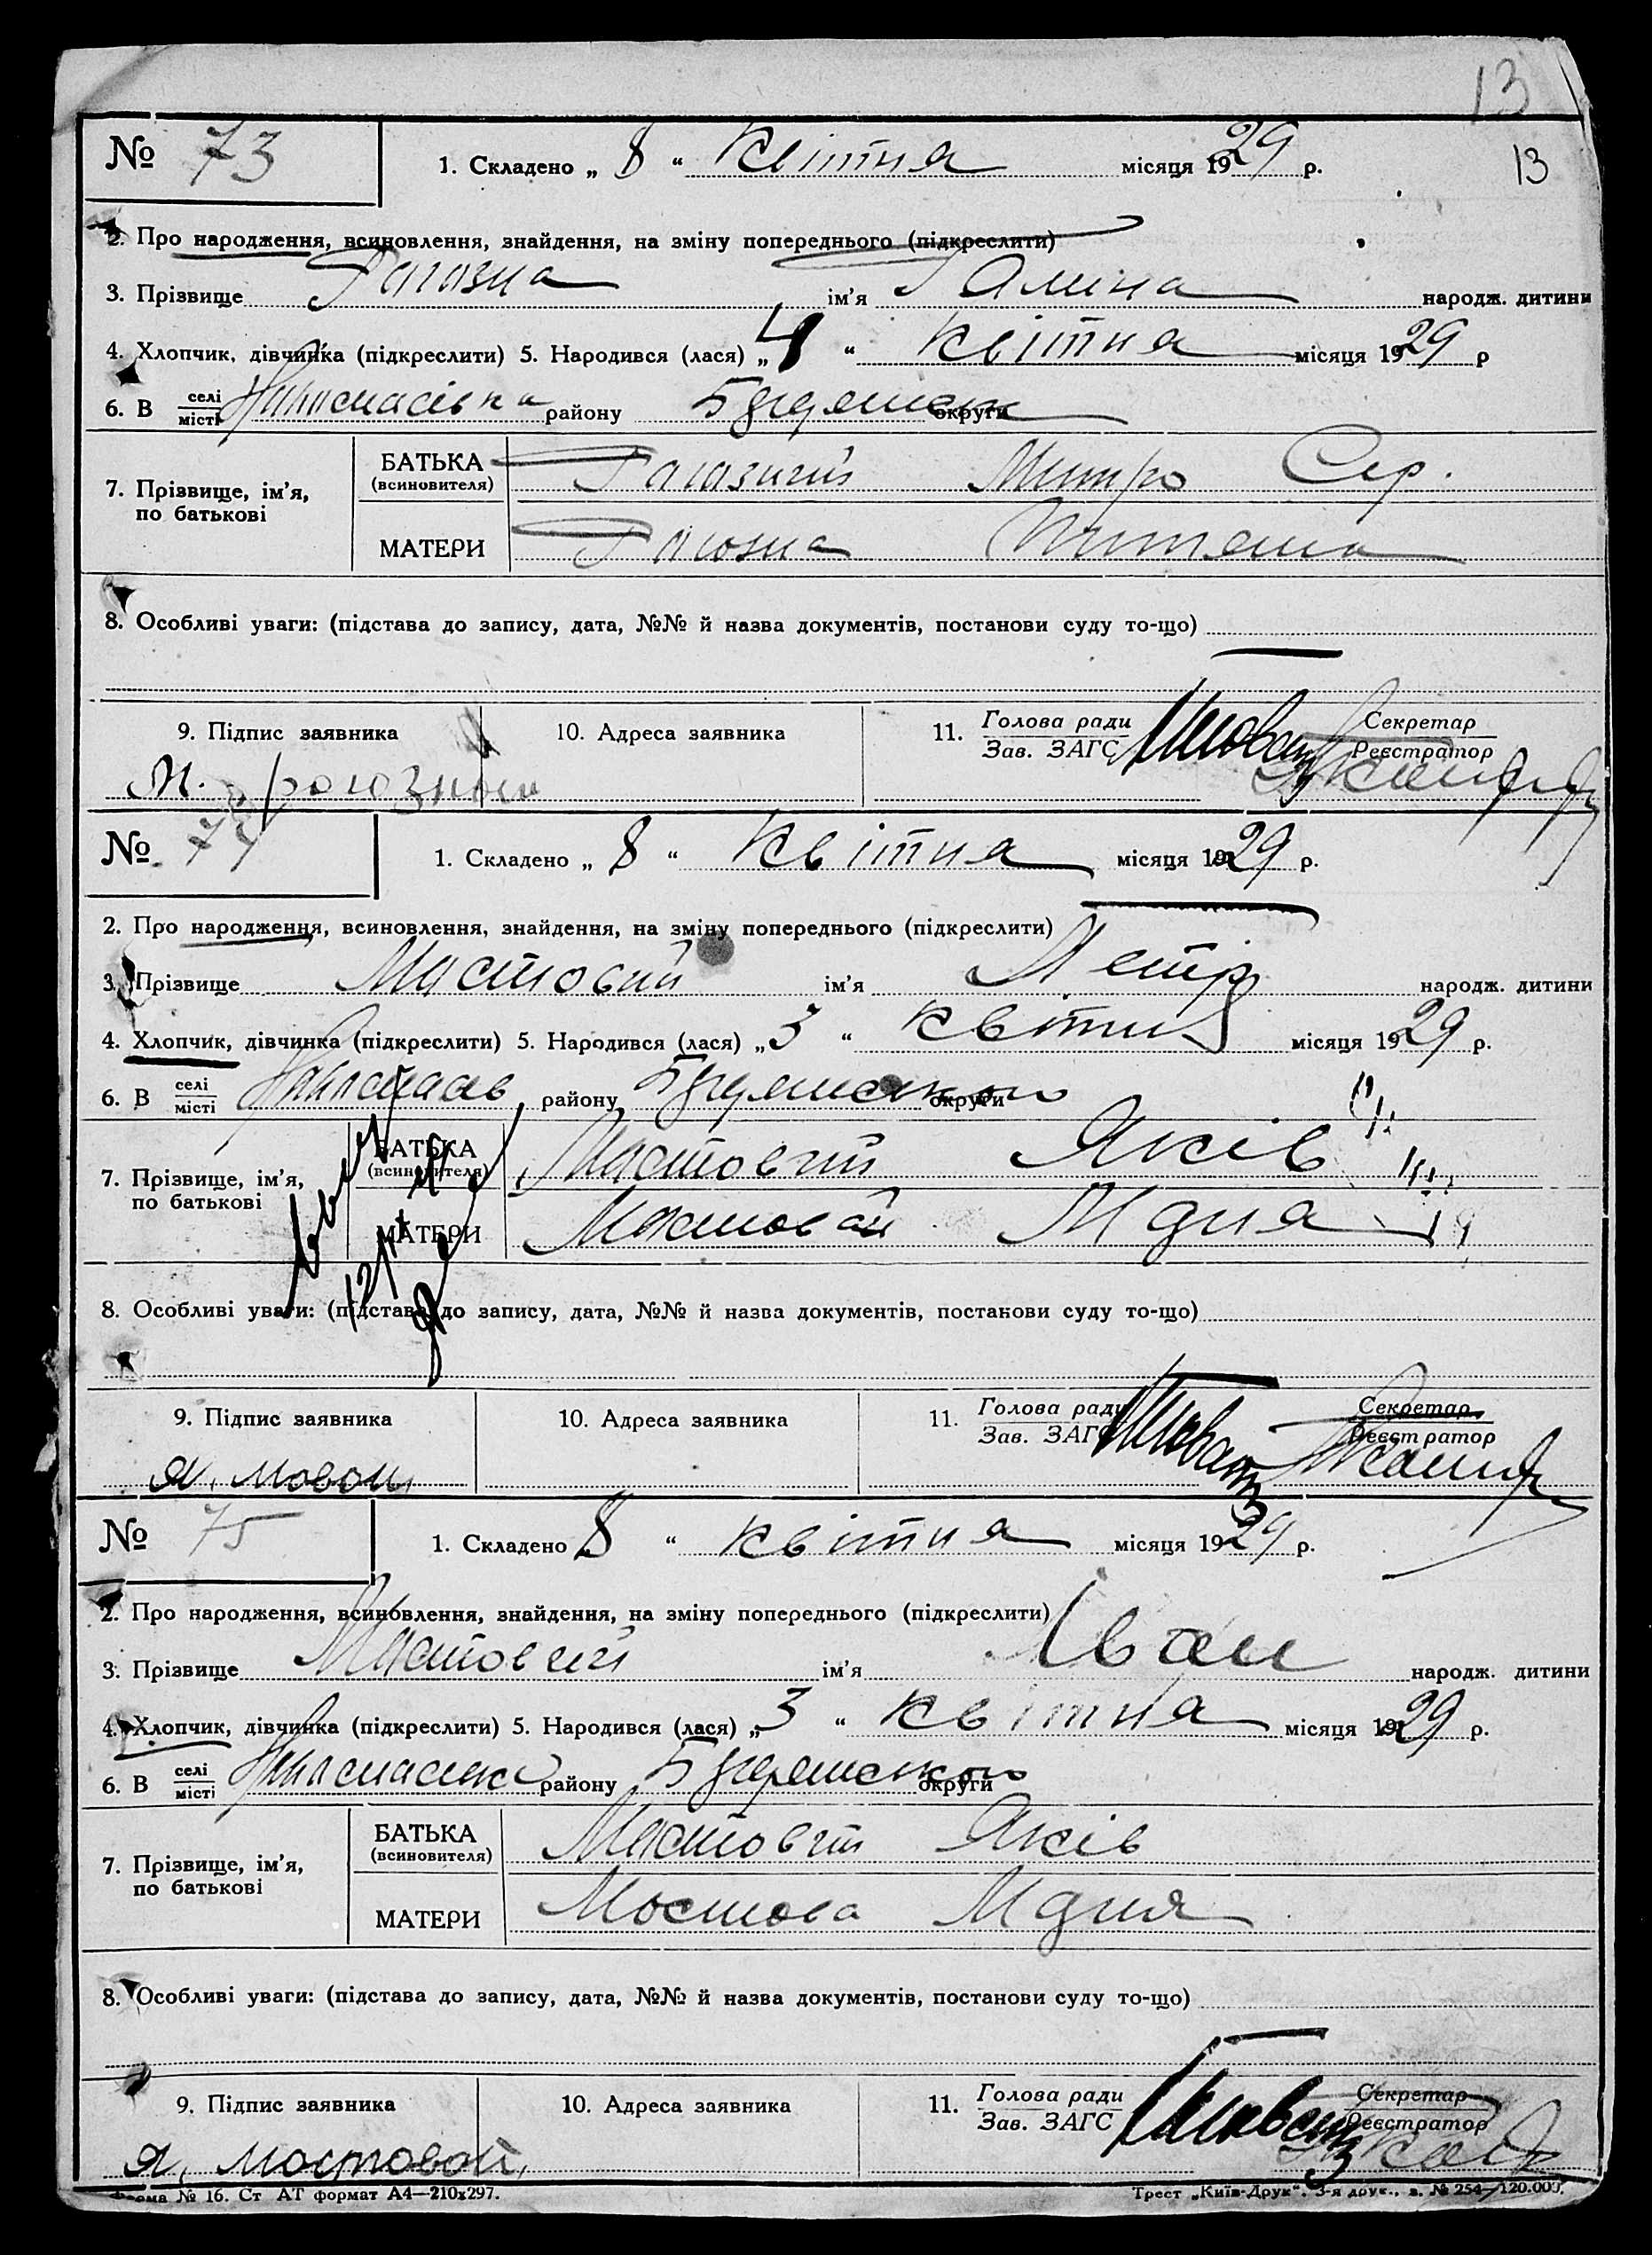 13
№ 73
1. Складено „ 8 “ Квітня місяця 1929 р.
13
2. Про народження, всиновлення, знайдення, на зміну попереднього (підкреслити)
3. Прізвище Рагазна ім'я Галина народж. дитини
4. Хлопчик, дівчинка (підкреслити) 5. Народився (лася) „ 4 “ Квітня місяця 1929 р
6. В селі місті району округи
7. Прізвище, ім'я, по батькові
БАТЬКА (всиновителя) Рагазний Митро Сер.
МАТЕРИ Рагозна
8. Особливі уваги: (підстава до запису, дата, №№ й назва документів, постанови суду то-що)
9. Підпис заявника 10. Адреса заявника 11. Голова ради Зав. ЗАГС Секретар Реєстратор
М. рогозный
№ 74
1. Складено „ 8 “ Квітня місяця 1929 р.
2. Про народження, всиновлення, знайдення, на зміну попереднього (підкреслити)
3. Прізвище Мастовий ім'я Петр народж. дитини
4. Хлопчик, дівчинка (підкреслити) 5. Народився (лася) „ 3 “ квітня місяця 1929 р.
6. В селі місті району округи
7. Прізвище, ім'я, по батькові
БАТЬКА (всиновителя) Мастовий Яків
МАТЕРИ Мастовой
8. Особливі уваги: (підстава до запису, дата, №№ й назва документів, постанови суду то-що)
9. Підпис заявника 10. Адреса заявника 11. Голова ради Зав. ЗАГС Секретар Реєстратор
Я.
№ 75
1. Складено „ 8 “ квітня місяця 1929 р.
2. Про народження, всиновлення, знайдення, на зміну попереднього (підкреслити)
3. Прізвище Мастовий ім'я Іван народж. дитини
4. Хлопчик, дівчинка (підкреслити) 5. Народився (лася) „ 3 “ квітня місяця 1929 р.
6. В селі місті району округи
7. Прізвище, ім'я, по батькові
БАТЬКА (всиновителя) Мастовий Яків
МАТЕРИ Мостова
8. Особливі уваги: (підстава до запису, дата, №№ й назва документів, постанови суду то-що)
9. Підпис заявника 10. Адреса заявника 11. Голова ради Зав. ЗАГС Секретар Реєстратор
Я. мостовой
Форма № 16. Ст АТ формат А4—210х297. Трест „Київ-Друк“. 3-я друк., з. № 254—120.000.